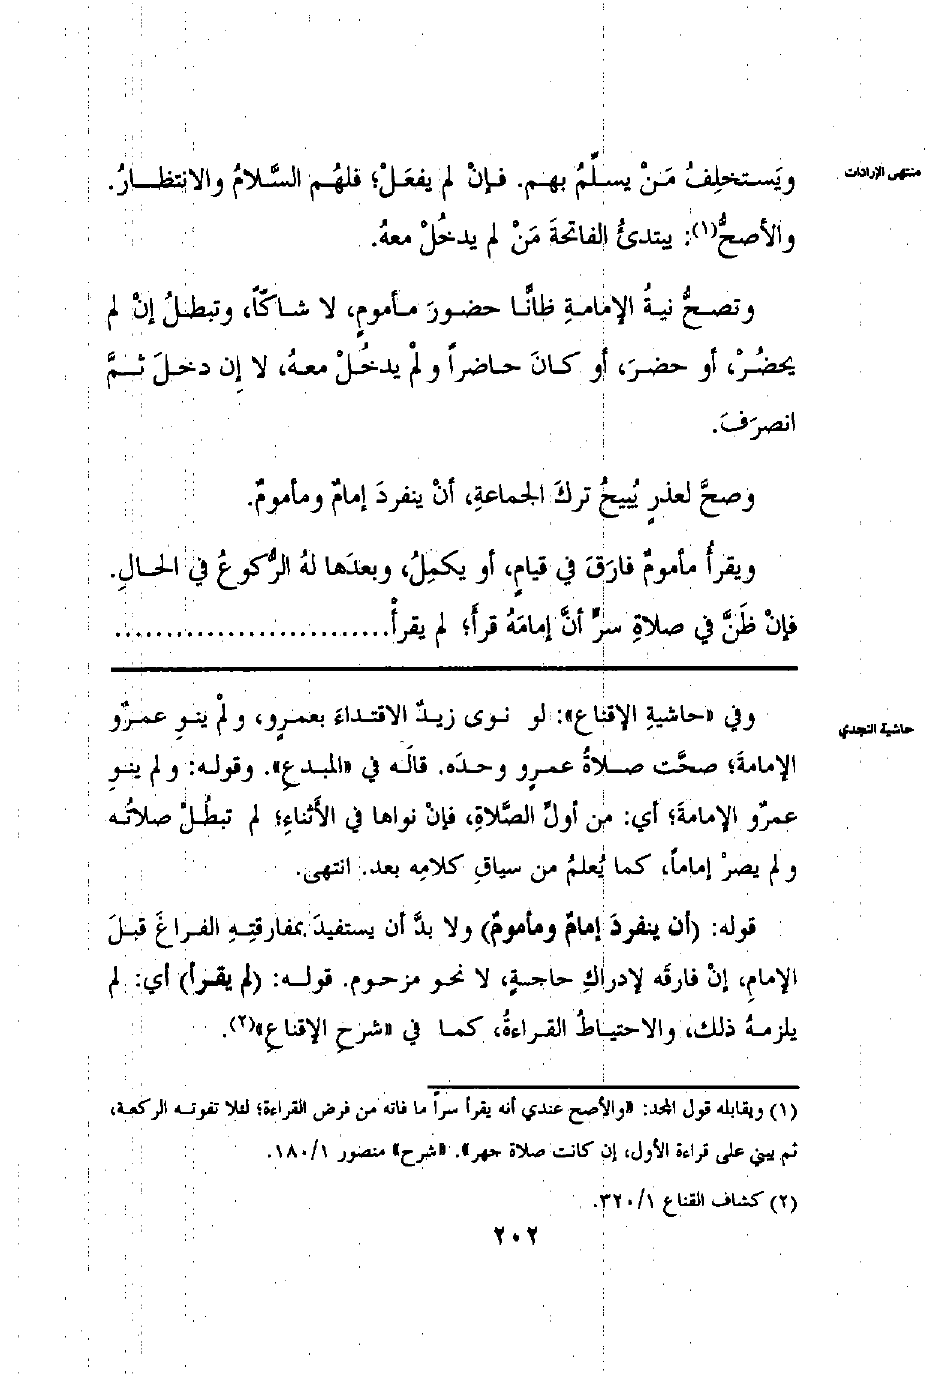 منتهى الإرادات
ويَستخلِفُ مَنْ يسلِّمُ بهم. فإنْ لم يفعَلْ؛ فلهُم السَّلامُ والانتظارُ.
والأصحُّ(١): يبتدئُ الفاتحةَ مَنْ لم يدخُلْ معهُ.
وتصحُّ نيةُ الإمامةِ ظانًّا حضورَ مأمومٍ، لا شاكّاً، وتبطلُ إنْ لم
يحضُرْ، أو حضرَ، أو كانَ حاضراً ولمْ يدخُلْ معهُ، لا إِن دخلَ ثمَّ
انصرَفَ.
وصحَّ لعذرٍ يُبيحُ تركَ الجماعةِ، أنْ ينفردَ إمامٌ ومأمومٌ.
ويقرأُ مأمومٌ فارَقَ في قيامٍ، أو يكمِلُ، وبعدَها لهُ الرُّكوعُ في الحالِ.
فإنْ ظَنَّ في صلاةِ سرٍّ أنَّ إمامَهُ قرأَ؛ لم يقرأْ............................
حاشية النجدي
وفي «حاشيةِ الإقناع»: لو نوى زيدٌ الاقتداءَ بعمرٍو، ولمْ ينوِ عمرٌو
الإمامةَ؛ صحَّت صلاةُ عمرٍو وحدَه. قالَه في «المبدعِ». وقوله: ولم ينوِ
عمرٌو الإمامةَ؛ أي: من أولِ الصَّلاةِ، فإنْ نواها في الأَثناءِ؛ لم تبطُلْ صلاتُه
ولم يصرْ إماماً، كما يُعلمُ من سياقِ كلامِه بعد. انتهى.
قوله: (أن ينفردَ إمامٌ ومأمومٌ) ولا بدَّ أن يستفيدَ بمفارقتِهِ الفراغَ قبلَ
الإمامِ، إنْ فارقَه لإدراكِ حاجةٍ، لا نحو مزحوم. قوله: (لم يقرأ) أي: لم
يلزمهُ ذلك، والاحتياطُ القراءةُ، كما في «شرحِ الإقناعِ»(٢).
(١) ويقابله قول المجد: «والأصح عندي أنه يقرأ سراً ما فاته من فرض القراءة؛ لئلا تفوته الركعة،
ثم يبني على قراءة الأول، إن كانت صلاة جهر». «شرح» منصور ١٨٠/١.
(٢) كشاف القناع ٣٢٠/١.
٢٠٢